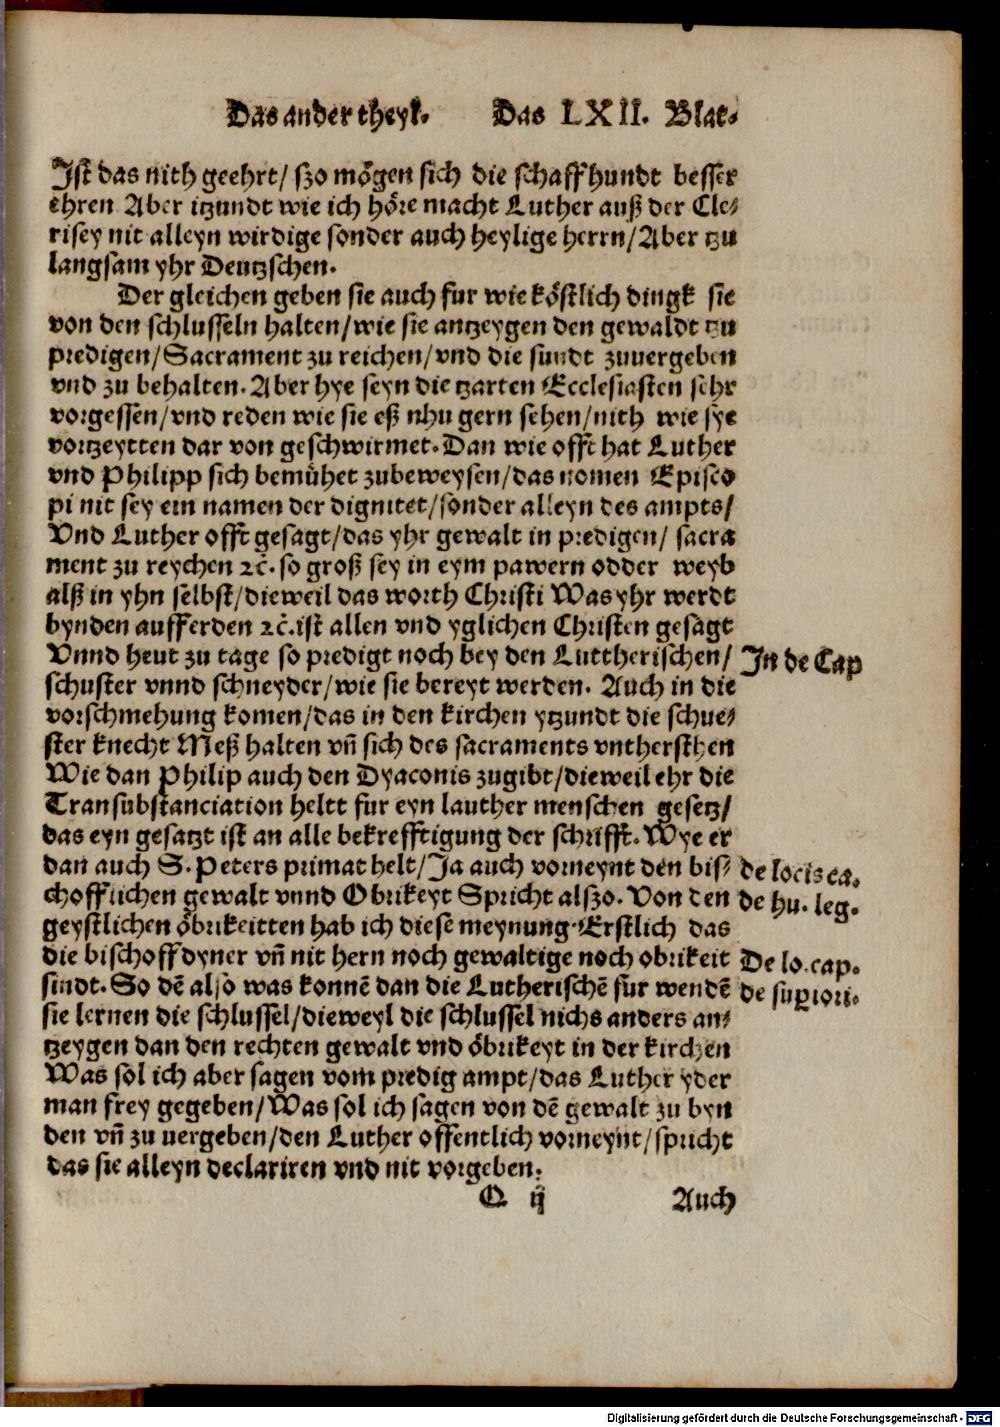 Das ander theyl. Das LXII. Blat.
Ist das nith geehrt/ szo mögen sich die schaffhundt besser
ehren Aber itzundt wie ich höre macht Luther auß der Cle⸗
risey nit alleyn wirdige sonder auch heylige herrn/Aber tzu
langsam yhr Deutzschen.
Der gleichen geben sie auch fur wie köstlich dingk sie
von den schlusseln halten/wie sie antzeygen den gewaldt tzu
predigen/Sacrament zu reichen/vnd die sundt zuuergeben
vnd zu behalten. Aber hye seyn die tzarten Ecclesiasten sehr
vorgessen/vnd reden wie sie eß nhu gern sehen/nith wie sye
vortzeytten dar von geschwirmet. Dan wie offt hat Luther
vnd Philipp sich bemühet zubeweysen/das nomen Episco
pi nit sey ein namen der dignitet/sonder alleyn des ampts/
Vnd Luther offt gesagt/das yhr gewalt in predigen/ sacra
ment zu reychen ꝛc̃. so groß sey in eym pawern odder weyb
alß in yhn selbst/dieweil das worth Christi Was yhr werdt
bynden aufferden ꝛc̃. ist allen vnd yglichen Christen gesagt
Vnnd heut zu tage so predigt noch bey den Luttherischen/
In de Cap
schuster vnnd schneyder/wie sie bereyt werden. Auch in die
vorschmehung komen/das in den kirchen ytzundt die schue⸗
ster knecht Meß halten vñ sich des sacraments vnthersthen
Wie dan Philip auch den Dyaconis zugibt/dieweil ehr die
Transubstanciation heltt fur eyn lauther menschen gesetz/
das eyn gesatzt ist an alle bekrefftigung der schrifft. Wye er
dan auch S. Peters primat helt/Ja auch vorneynt den bis⸗
de locis ca.
chofflichen gewalt vnnd Obrikeyt Spricht alßzo. Von den
de hu. leg.
geystlichen öbrikeitten hab ich diese meynung. Erstlich das
die bischoff dyner vñ nit hern noch gewaltige noch obrikeit
De lo. cap.
sindt. So dē also was konnē dan die Lutherischē fur wendē
de suꝑiori.
sie lernen die schlussel/dieweyl die schlussel nichs anders an⸗
tzeygen dan den rechten gewalt vnd öbrikeyt in der kirchen
Was sol ich aber sagen vom predig ampt/das Luther yder
man frey gegeben/Was sol ich sagen von dē gewalt zu byn
den vñ zu uergeben/den Luther offentlich vorneynt/spricht
das sie alleyn declariren vnd nit vorgeben.
Q ij Auch
Digitalisierung gefördert durch die Deutsche Forschungsgemeinschaft - DFG